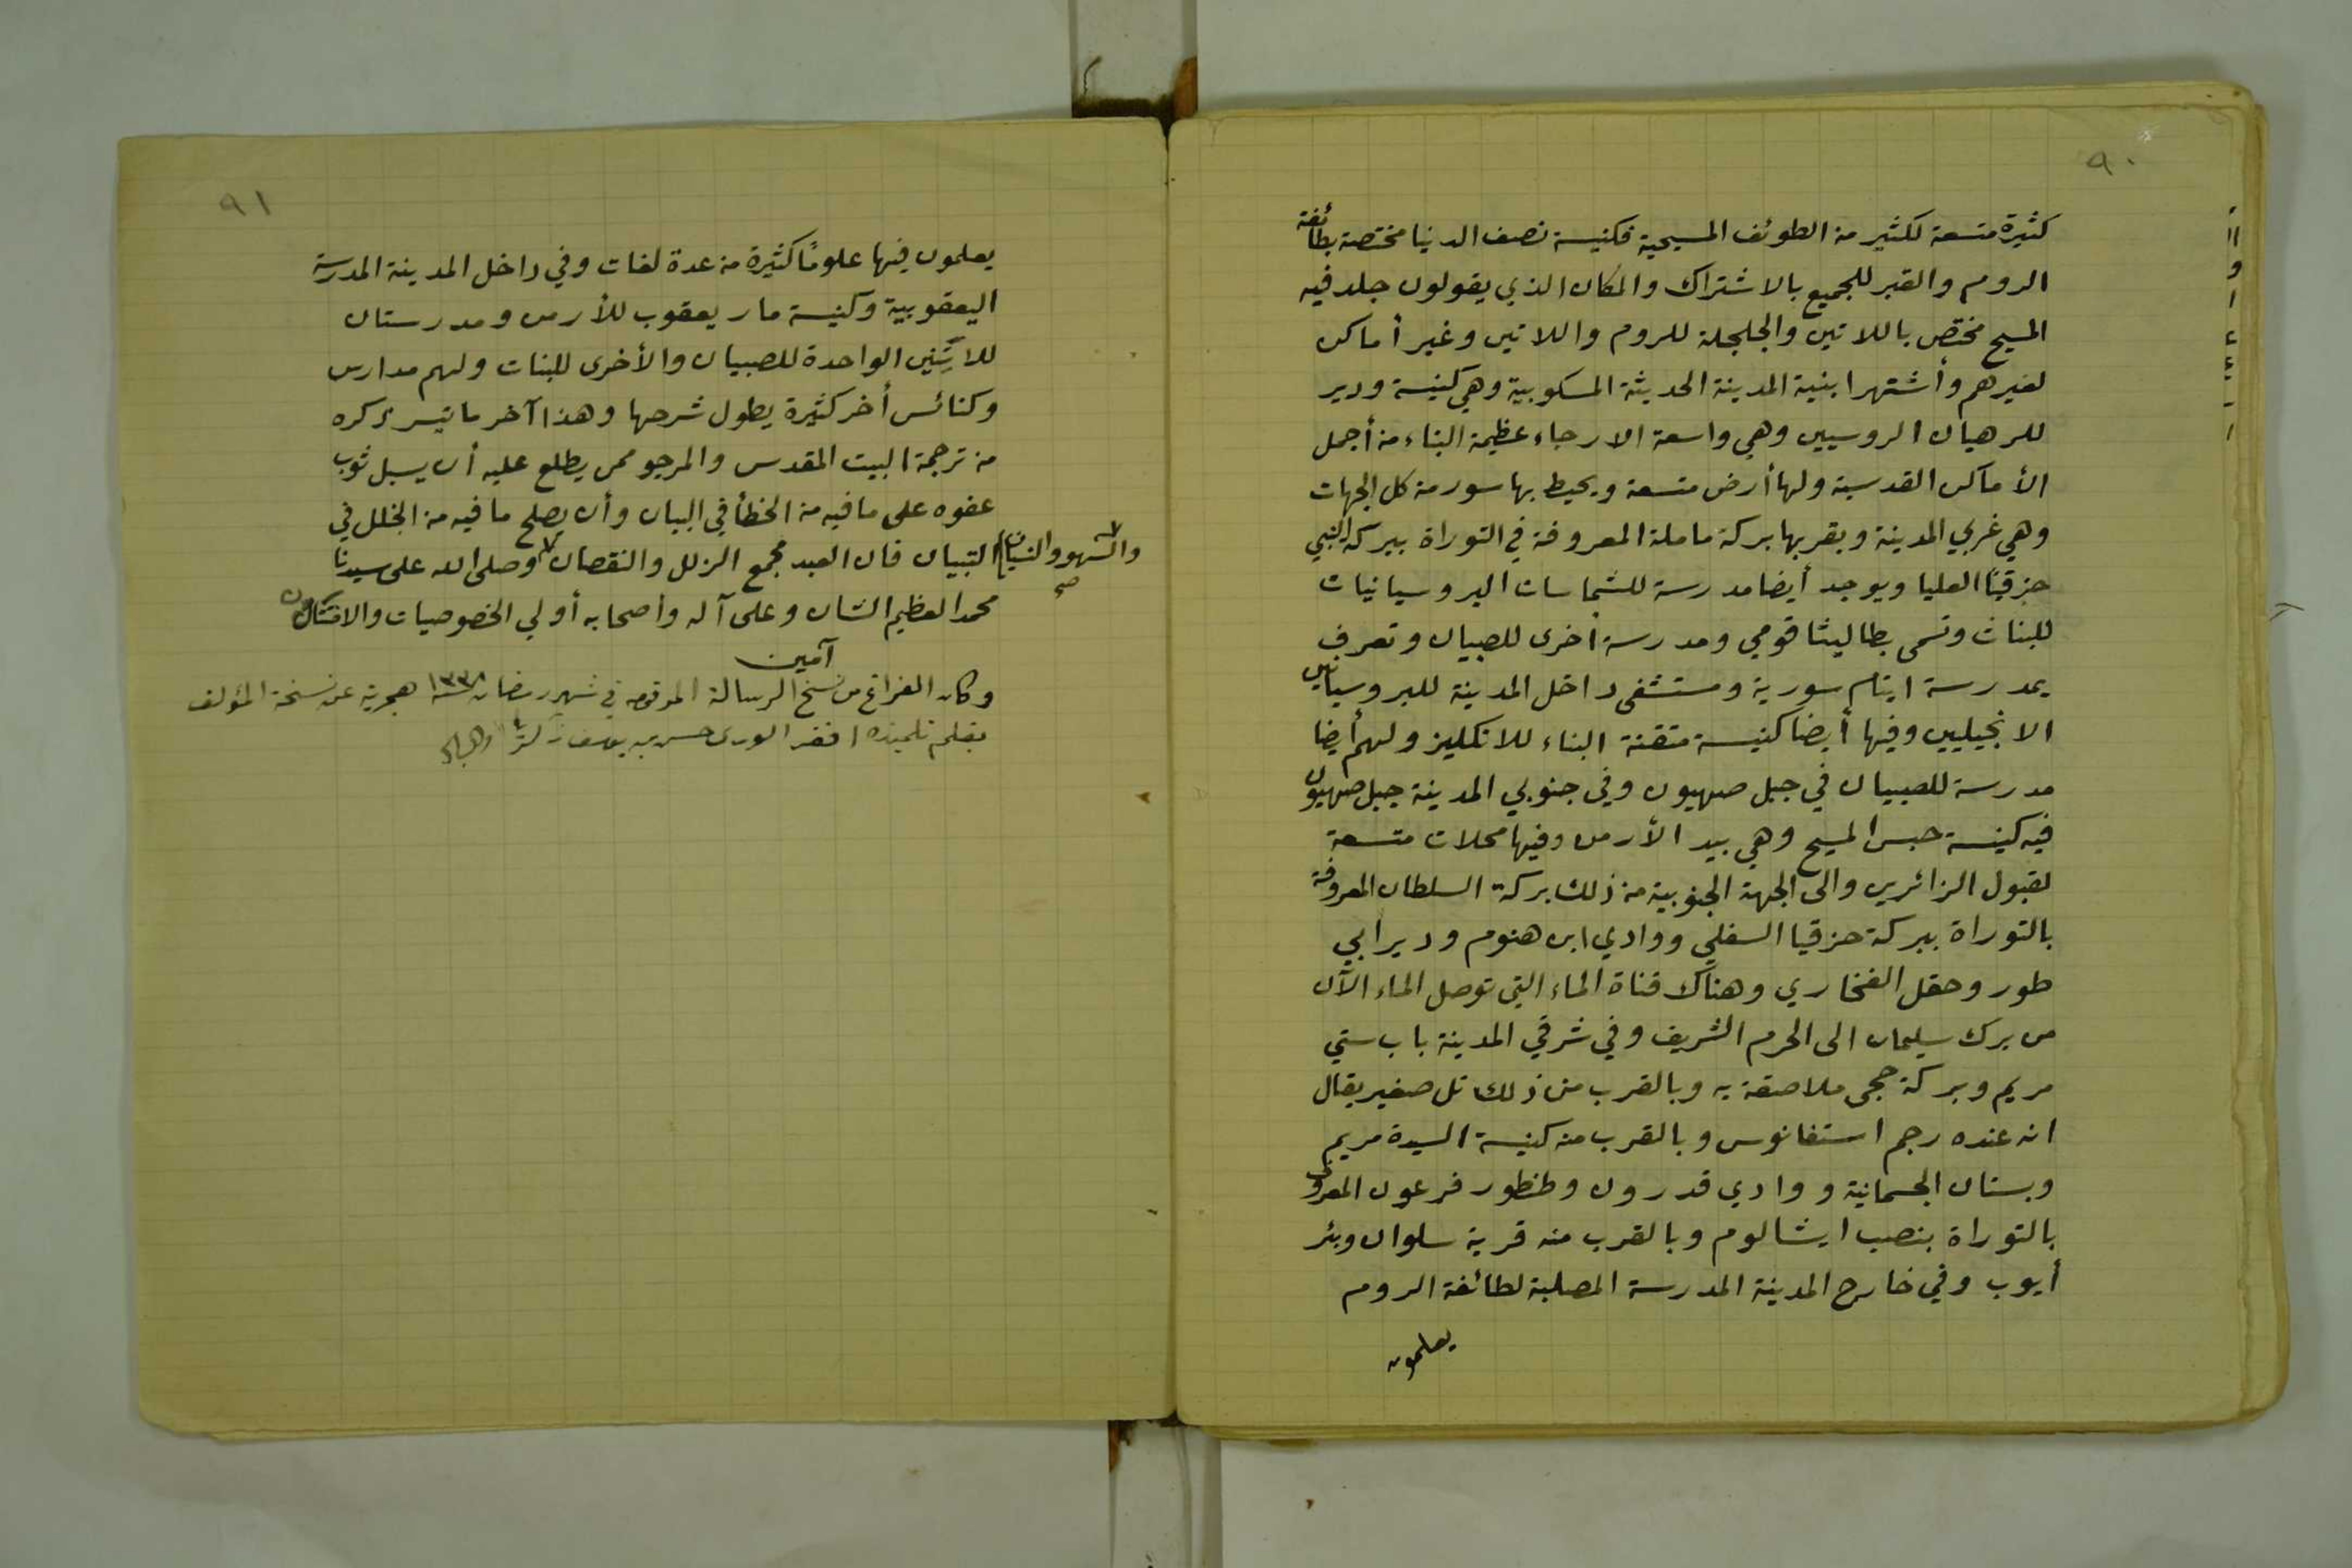 ٩٠
كثيرة متسعة لكثير من الطوئف المسيحية فكنيسة نصف الدنيا مختصة بطائفة
الروم والقبر للجميع بالاشتراك والمكان الذي يقولون جلد فيه
المسيح مختص باللاتين والجلجلة للروم واللاتين وغير أماكن
لغيرهم وأشتهر ابنية المدينة الحديثة المسكوبية وهي كنيسة ودير
للرهبان الروسيين وهي واسعة الارجاء عظيمة البناء من أجمل
الأماكن القدسية ولها أرض متسعة ويحيط بها سور من كل الجهات
وهي غربي المدينة وبقربها بركة ماملة المعروفة في التوراة ببركة النبي
حزقيّا العليا ويوجد أيضا مدرسة للشماسات البروسيانيات
للبنات وتسمى بطاليثا قومي ومدرسة أخرى للصبيان وتعرف
بمدرسة ايتام سورية ومستشفى داخل المدينة للبروسيانيين
الانجيليين وفيها أيضا كنيسة متقنة البناء للانكليز ولهم أيضا
مدرسة للصبيان في جبل صهيون وفي جنوبي المدينة جبل صهيون
فيه كنيسة حبس المسيح وهي بيد الأرمن وفيها محلات متسعة
لقبول الزائرين والى الجهة الجنوبية من ذلك بركة السلطان المعروفة
بالتوراة ببركة حزقيا السفلي ووادي ابن هنوم ودير ابي
طور وحقل الفخاري وهناك قناة الماء التي توصل الماء الآن
من برك سليمان الى الحرم الشريف وفي شرقي المدينة باب ستي
مريم وبركة حجى ملاصقة به وبالقرب من ذلك تل صغير يقال
انه عنده رجم استفانوس وبالقرب منه كنيسة السيدة مريم
وبستان الجسمانية ووادي قدرون وطنطور فرعون المعروف
بالتوراة بنصب ابشالوم وبالقرب منه قرية سلوان وبئر
أيوب وفي خارج المدينة المدرسة المصلبة لطائفة الروم
يعلمون
٩١
يعلمون فيها علومًا كثيرة من عدة لغات وفي داخل المدينة المدرسة
اليعقوبية وكنيسة مار يعقوب للأرمن ومدرستان
للاتِنِين الواحدة للصبيان والأخرى للبنات ولهم مدارس
وكنائس أخر كثيرة يطول شرحها وهذا آخر ما تيسر ذكره
من ترجمة البيت المقدس والمرجو ممن يطلع عليه أن يسبل ثوب
عفوه على ما فيه من الخطأ في البيان وأن يصلح ما فيه من الخلل في
التبيان فان العبد مجمع الزلل والنقصان وصلى الله على سيدنا
والسهو والنسيان صح
محمد العظيم الشان وعلى آله واصحابه أولي الخصوصيات والامتنان
آمين
وكان الفراغ من نسخ الرسالة المرقومه في شهر رمضان سنة ١٣٣٨ هجرية عن نسخة المؤلف
بقلم تلميذه افقر الورى حسن بن يوسف